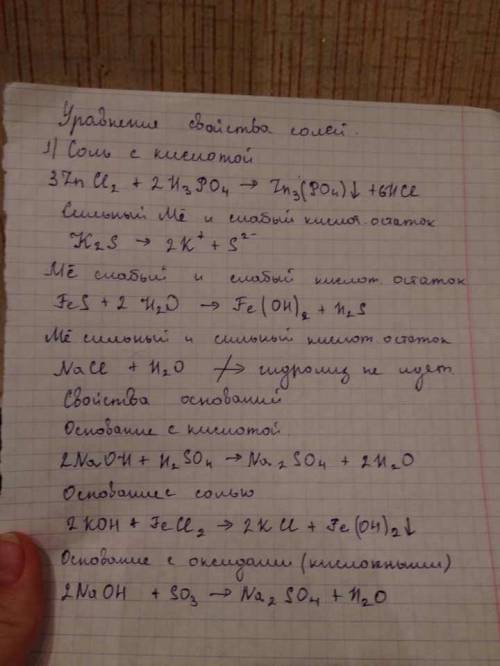 Уравнения свойства солей.
1) Соль с кислотой
3ZnCl₂ + 2H₃PO₄ → Zn₃(PO₄)↓ + 6HCl
Сильный Ме и слабый кислот. остаток
K₂S → 2K⁺ + S²⁻
Ме слабый и слабый кислот. остаток
FeS + 2 H₂O → Fe(OH)₂ + H₂S
Ме сильный и сильный кислот остаток
NaCl + H₂O ↛ гидролиз не идет
Свойства оснований
Основание с кислотой
2NaOH + H₂SO₄ → Na₂SO₄ + 2H₂O
Основание с солью
2KOH + FeCl₂ → 2KCl + Fe(OH)₂↓
Основание с оксидами (кислотными)
2NaOH + SO₃ → Na₂SO₄ + H₂O